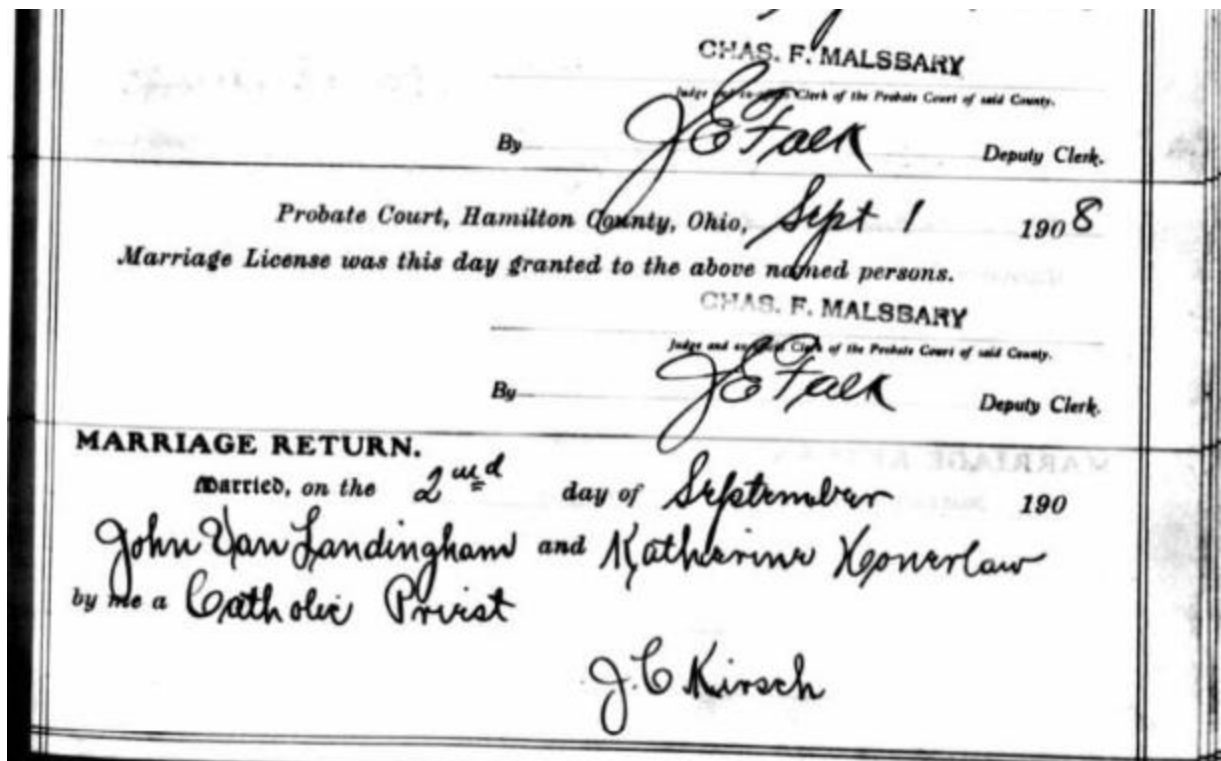 CHAS. F. MALSBARY
Judge and ex-officio Clerk of the Probate Court of said County.
By J E Falk Deputy Clerk.
Probate Court, Hamilton County, Ohio, Sept 1 1908
Marriage License was this day granted to the above named persons.
CHAS. F. MALSBARY
Judge and ex-officio Clerk of the Probate Court of said County.
By J E Falk Deputy Clerk.
MARRIAGE RETURN.
Married, on the 2nd day of September 190
John Van Landingham and Katherine Honerlaw
by me a Catholic Priest
J. C Kirsch